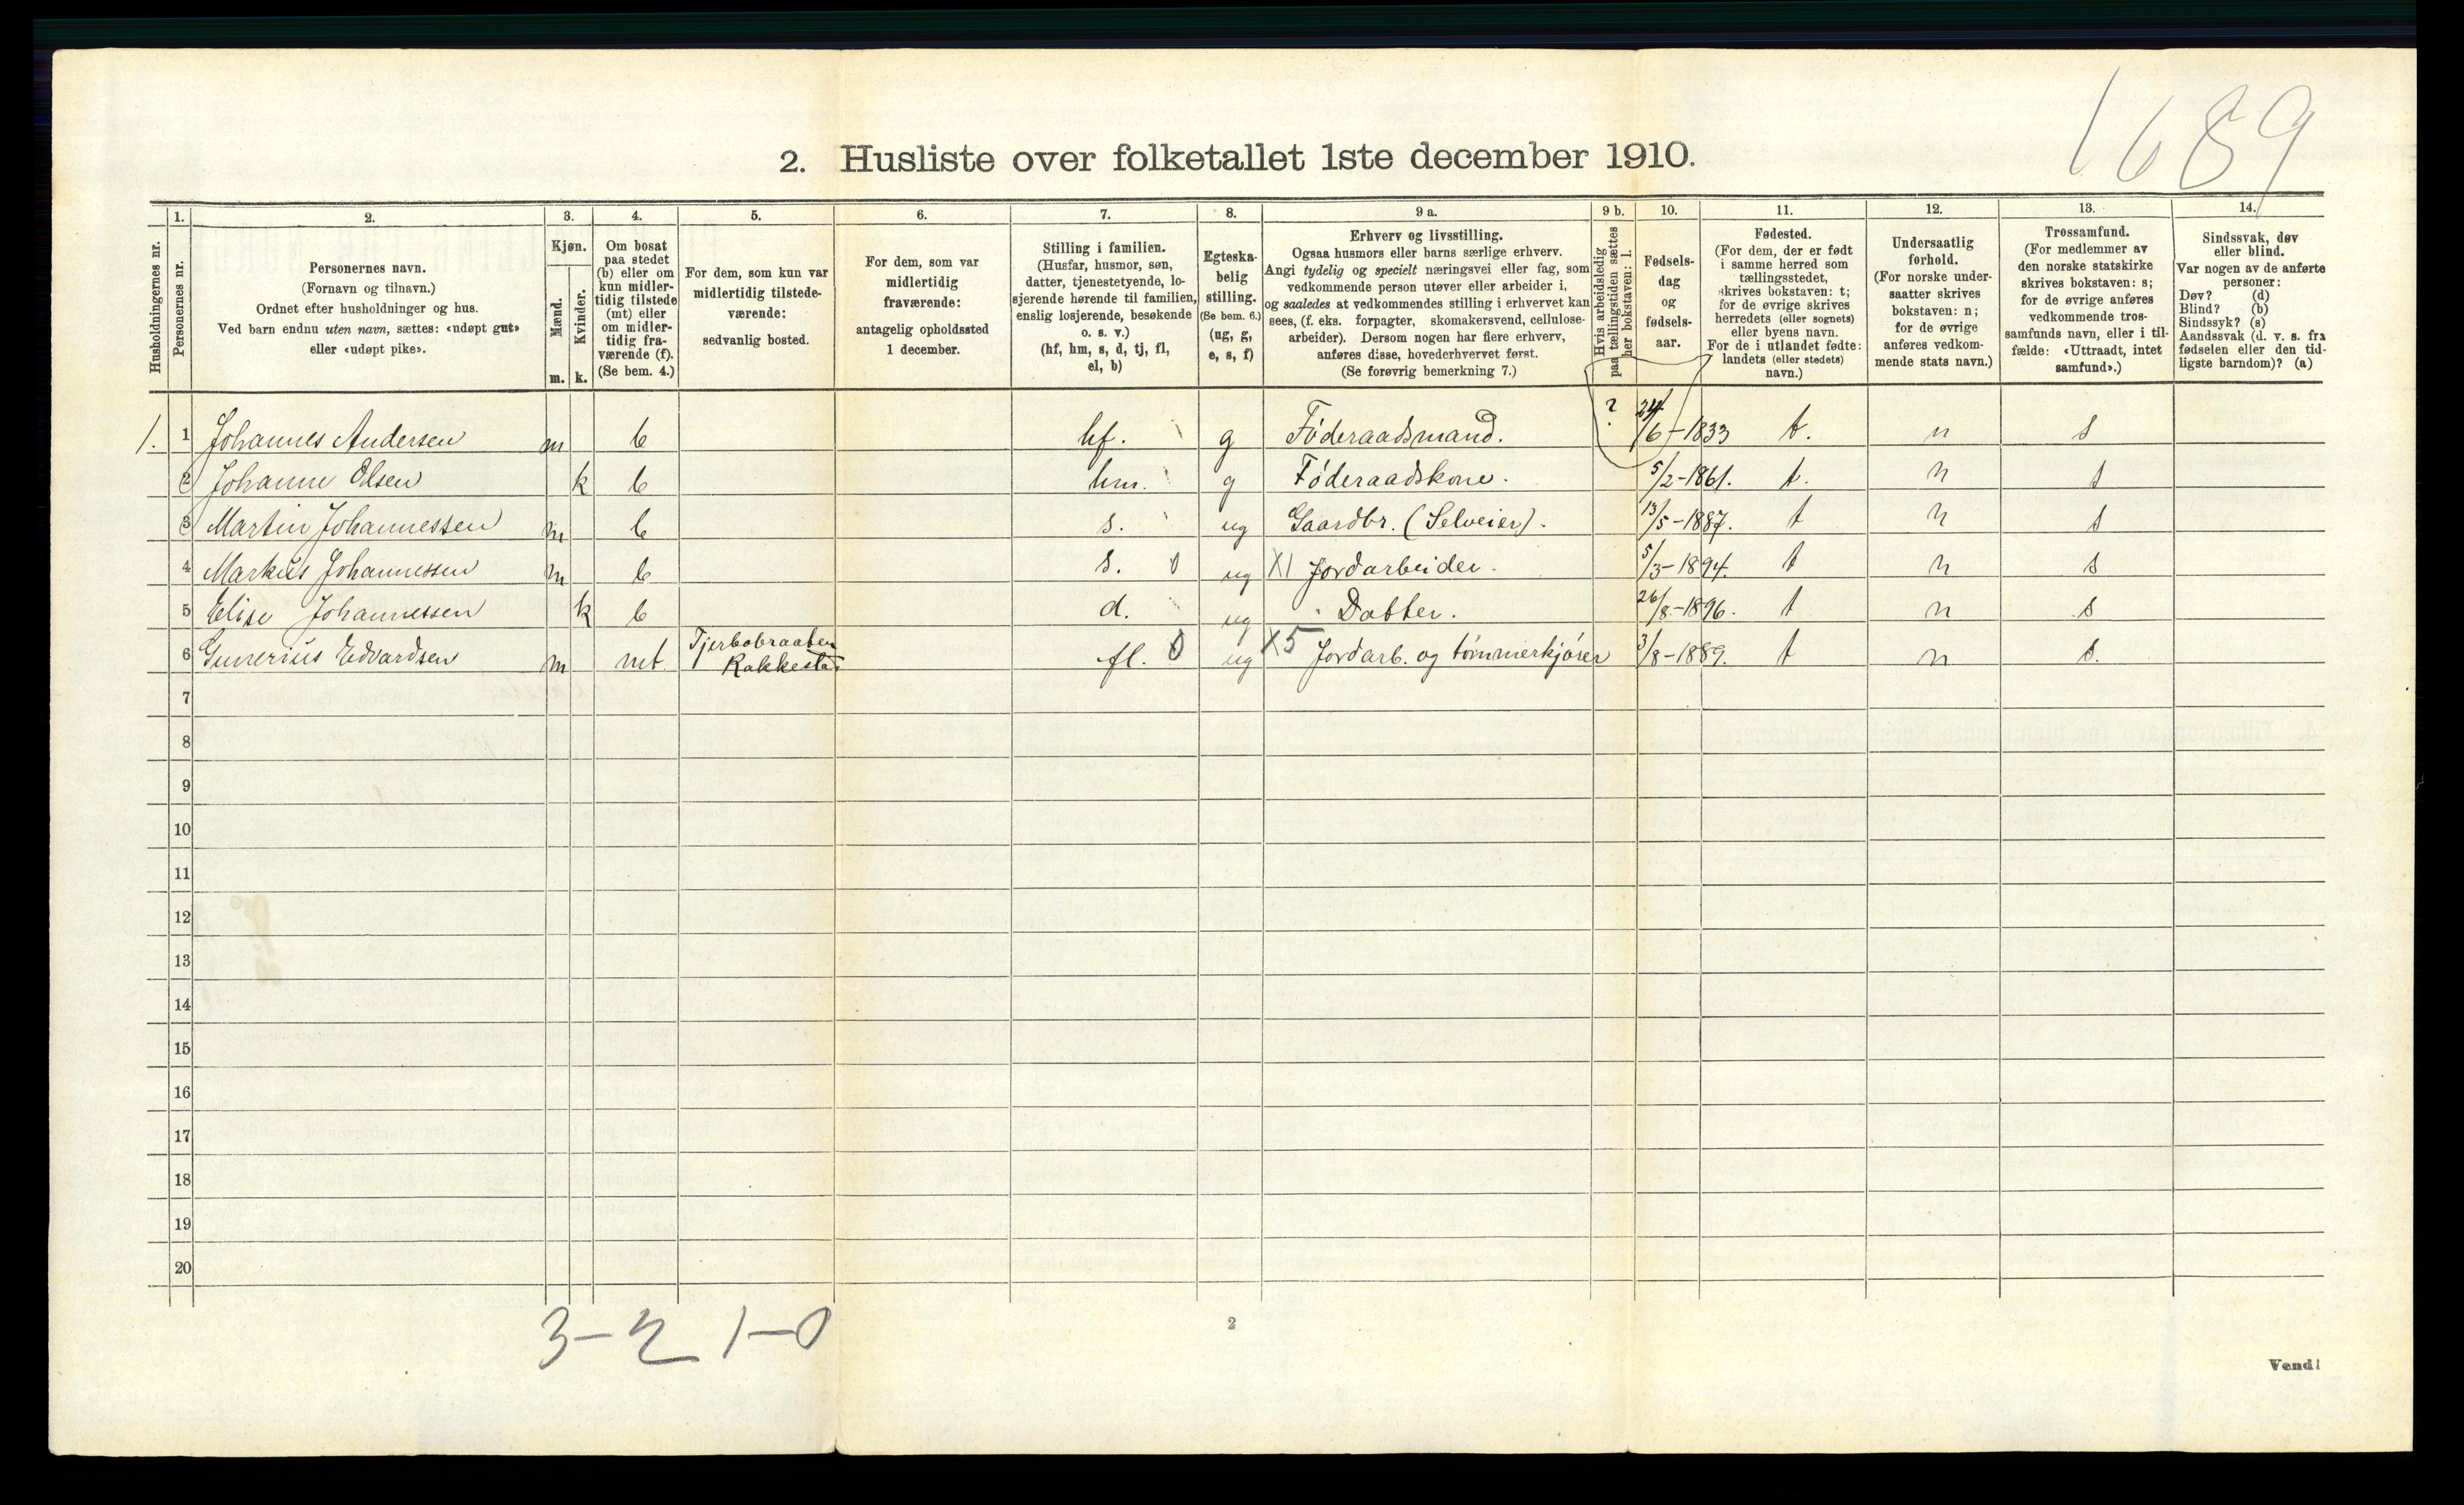 1689
2. Husliste over folketallet 1ste december 1910.
Husholdningernes nr.
1.
Personernes nr.
2.
Personernes navn.
(Fornavn og tilnavn.)
Ordnet efter husholdninger og hus.
Ved barn endnu uten navn, sættes: «udøpt gut»
eller «udøpt pike».
3.
Kjøn.
Mænd.
Kvinder.
m. k.
4.
Om bosat
paa stedet
(b) eller om
kun midler-
tidig tilstede
(mt) eller
om midler-
tidig fra-
værende (f).
(Se bem. 4.)
5.
For dem, som kun var
midlertidig tilstede-
værende:
sedvanlig bosted.
6.
For dem, som var
midlertidig
fraværende:
antagelig opholdssted
1 december.
7.
Stilling i familien.
(Husfar, husmor, søn,
datter, tjenestetyende, lo-
sjerende hørende til familien,
enslig losjerende, besøkende
o. s. v.)
(hf, hm, s, d, tj, fl,
el, b)
8.
Egteska-
belig
stilling.
(Se bem. 6.)
(ug, g,
e, s, f)
9 a.
Erhverv og livsstilling.
Ogsaa husmors eller barns særlige erhverv.
Angi tydelig og specielt næringsvei eller fag, som
vedkommende person utøver eller arbeider i,
og saaledes at vedkommendes stilling i erhvervet kan
sees, (f. eks. forpagter, skomakersvend, cellulose-
arbeider). Dersom nogen har flere erhverv,
anføres disse, hovederhvervet først.
(Se forøvrig bemerkning 7.)
9 b.
Hvis arbeidsledig
paa tællingstiden sættes
her bokstaven: l.
10.
Fødsels-
dag
og
fødsels-
aar.
11.
Fødested.
(For dem, der er født
i samme herred som
tællingsstedet,
skrives bokstaven: t;
for de øvrige skrives
herredets (eller sognets)
eller byens navn.
For de i utlandet fødte:
landets (eller stedets)
navn.)
12.
Undersaatlig
forhold.
(For norske under-
saatter skrives
bokstaven: n;
for de øvrige
anføres vedkom-
mende stats navn.)
13.
Trossamfund.
(For medlemmer av
den norske statskirke
skrives bokstaven: s;
for de øvrige anføres
vedkommende tros-
samfunds navn, eller i til-
fælde: «Uttraadt, intet
samfund».)
14.
Sindssvak, døv
eller blind.
Var nogen av de anførte
personer:
Døv? (d)
Blind? (b)
Sindssyk? (s)
Aandssvak (d. v. s. fra
fødselen eller den tid-
ligste barndom)? (a)
1. 1 Johannes Andersen m b hf. g Føderaadsmand. ? 24/6-1833 t. n s
2 Johanne Olsen k b hm. g Føderaadskone. 5/2-1861. t. n s
3 Martin Johannessen m b s. ug Gaardbr. (Selveier). 13/5-1887. t n s
4 Markus Johannessen m b s. 0 ug X1 Jordarbeider. 5/3-1894. t n s
5 Elise Johannessen k b d. ug Datter. 26/8-1896. t n s
6 Gunerius Edvardsen m mt Tjerbobraaten
Rakkestad fl. 0 ug X5 Jordarb. og tømmerkjører 3/8-1889. t n s.
7
8
9
10
11
12
13
14
15
16
17
18
19
20
3-2 1-0
2
Vend!